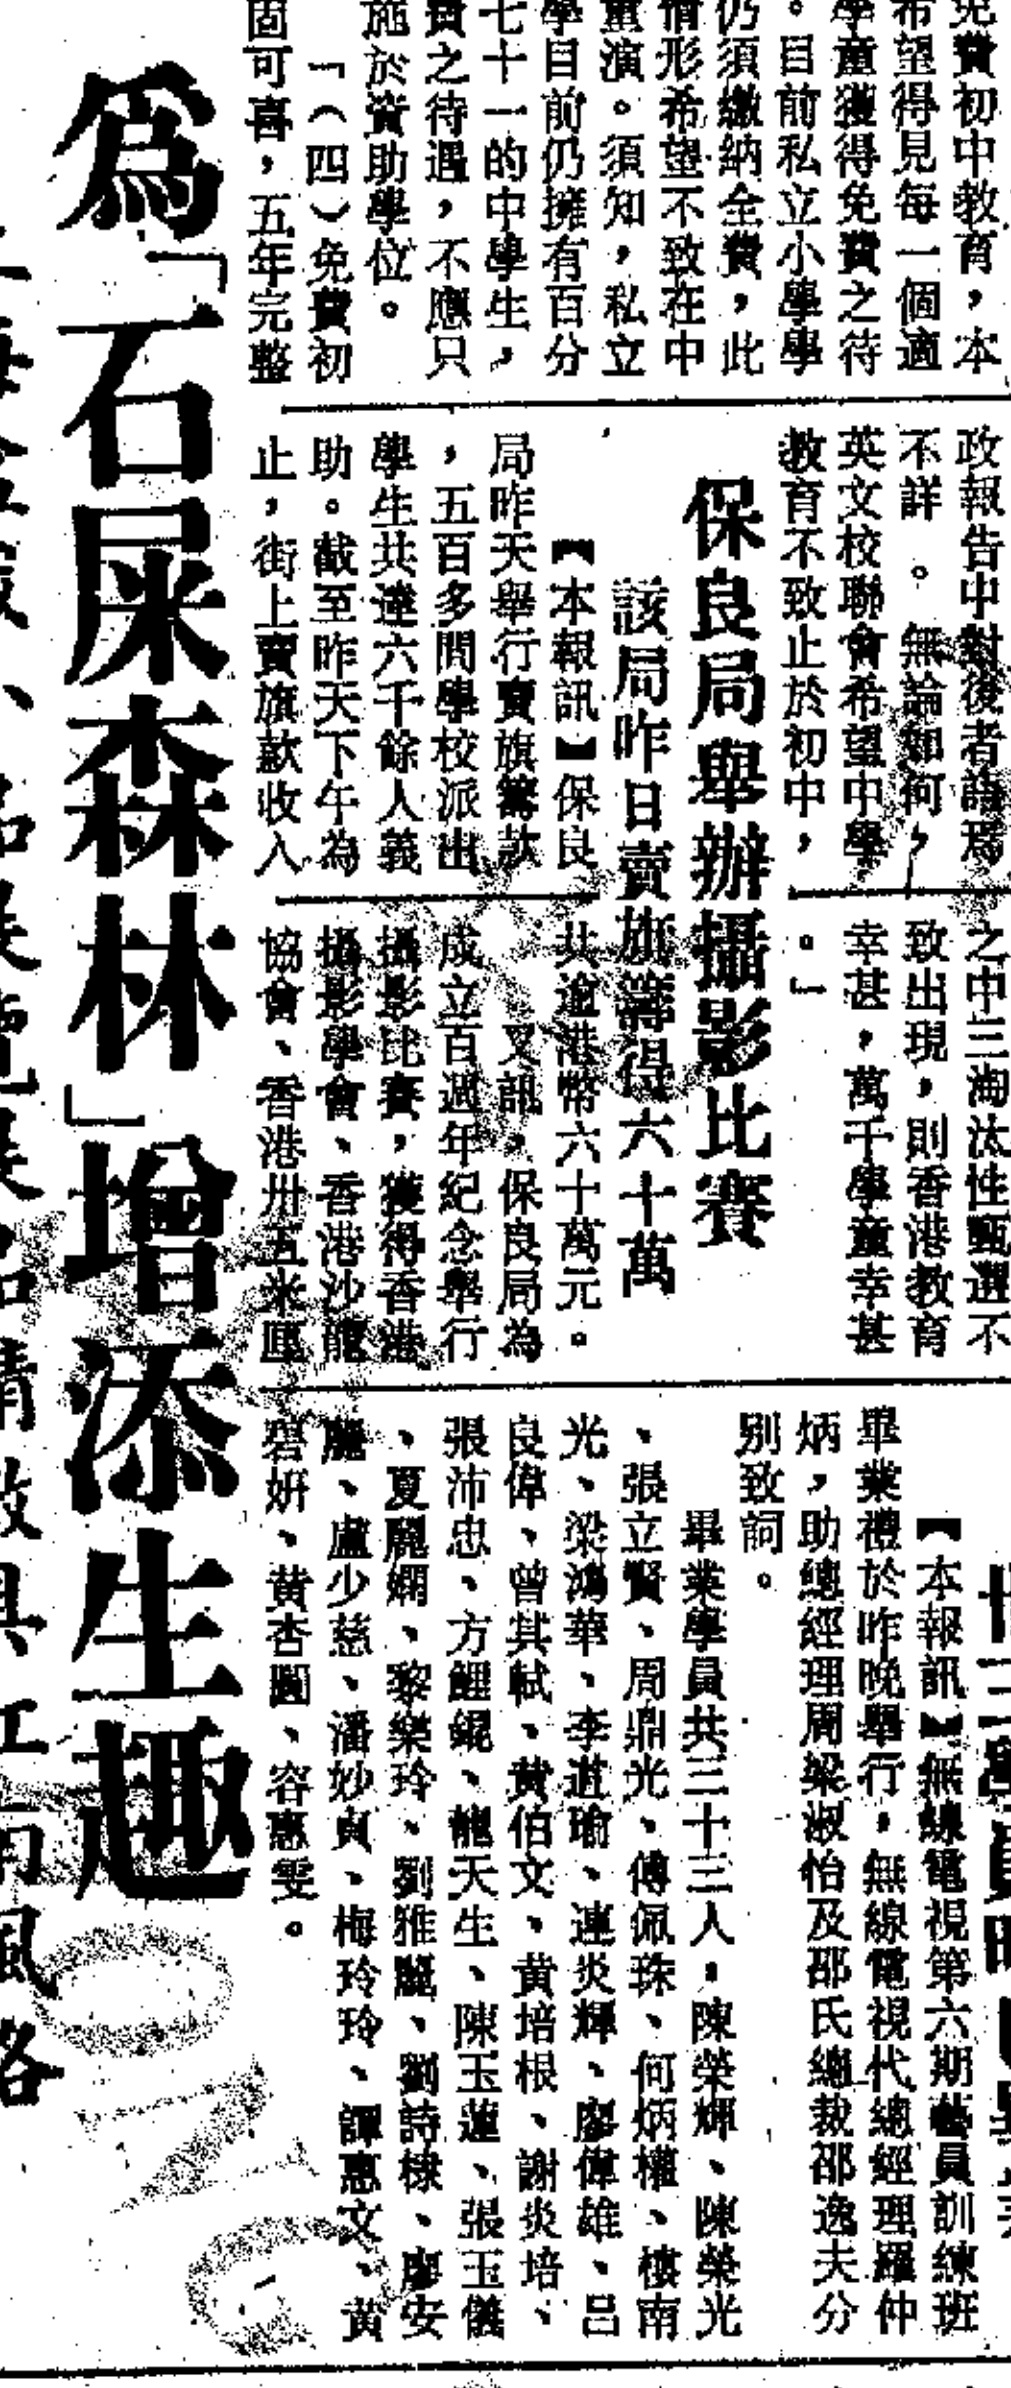 免費初中教育，本
希望得見每一個適
學童獲得免費之待
。目前私立小學學
仍須繳納全費，此
情形希望不致在中
重演。須知，私立
學目前仍擁有百分
七十一的中學生，
費之待遇，不應只
施於資助學位。
「（四）免費初
固可喜，五年完整
政報告中對後者語焉
不詳。無論如何，
英文校聯會希望中學
教育不致止於初中，
之中三淘汰性甄選不
致出現，則香港教育
幸甚，萬千學童幸甚
。」
保良局舉辦攝影比賽
該局昨日賣旗籌得六十萬
【本報訊】保良
局昨天舉行賣旗籌款
，五百多間學校派出
學生共達六千餘人義
助。截至昨天下午為
止，街上賣旗款收入
共逾港幣六十萬元。
又訊，保良局為
成立百週年紀念舉行
攝影比賽，獲得香港
攝影學會、香港沙龍
協會、香港卅五米厘
【本報訊】無線電視第六期藝員訓練班
畢業禮於昨晚舉行，無線電視代總經理羅仲
炳，助總經理周梁淑怡及邵氏總裁邵逸夫分
別致詞。
畢業學員共三十三人，陳榮輝、陳榮光
、張立賢、周鼎光、傅佩珠、何炳權、樓南
光、梁鴻華、李道瑜、連炎輝、廖偉雄、呂
良偉、曾其軾、黄伯文、黄培根、謝炎培、
張沛忠、方鯉鯤、龍天生、陳玉蓮、張玉儀
、夏麗嫻、黎樂玲、劉雅麗、劉詩棣、廖安
麗、盧少慈、潘妙貞、梅玲玲、譚惠文、黃
碧妍、黄杏圓、容惠雯。
為「石屎森林」增添生趣